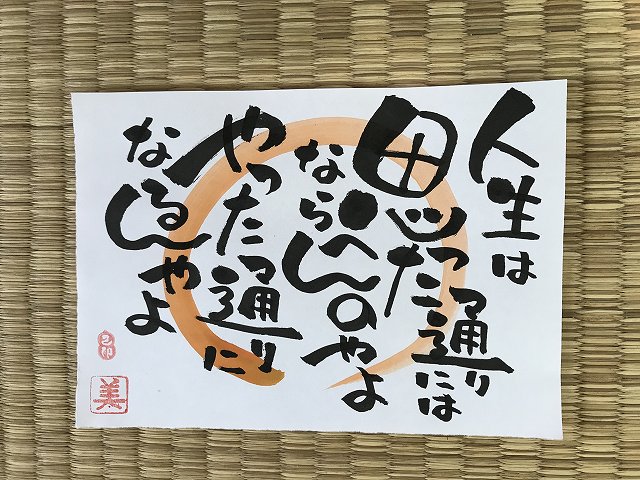 人生は
思った通りには
ならへんのやよ
やった通りに
なるんやよ
美